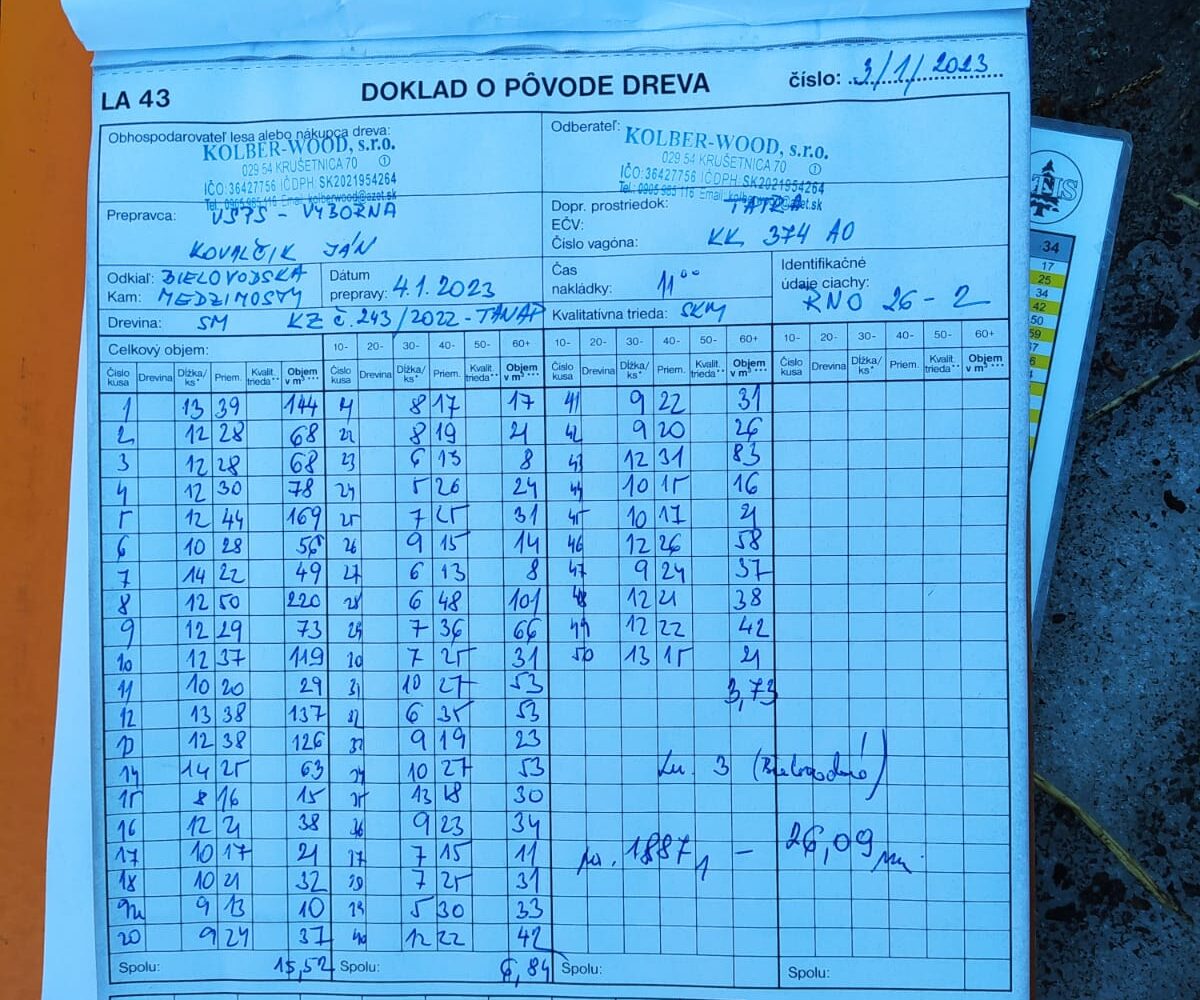 LA 43
DOKLAD O PÔVODE DREVA
číslo: 3/1/2023
Obhospodarovateľ lesa alebo nákupca dreva:
KOLBER-WOOD, s.r.o.
029 54 KRUŠETNICA 70 ①
IČO: 36427756 IČDPH: SK2021954264
Tel.: 0905 965 116 Email: kolberwood@azet.sk
Odberateľ:
KOLBER-WOOD, s.r.o.
029 54 KRUŠETNICA 70 ①
IČO: 36427756 IČDPH: SK2021954264
Tel.: 0905 965 116 Email:
Prepravca: - VÝBORNÁ
KOVALČIK JÁN
Dopr. prostriedok: TATRA
EČV:
Číslo vagóna: KK 374 AO
Odkiaľ: BIELOVODSKÁ
Kam: MEDZIMOSTY
Dátum
prepravy: 4.1.2023
Čas
nakládky: 11⁰⁰
Identifikačné
údaje ciachy:
RNO 26-2
Drevina: SM KZ č. 243/2022 - TANAP
Kvalitatívna trieda: SKM
Celkový objem: 10- 20- 30- 40- 50- 60+ 10- 20- 30- 40- 50- 60+ 10- 20- 30- 40- 50- 60+
Číslo kusa Drevina Dĺžka/ ks* Priem. Kvalit. trieda** Objem v m³ *** Číslo kusa Drevina Dĺžka/ ks* Priem. Kvalit. trieda** Objem v m³ *** Číslo kusa Drevina Dĺžka/ ks* Priem. Kvalit. trieda** Objem v m³ *** Číslo kusa Drevina Dĺžka/ ks* Priem. Kvalit. trieda** Objem v m³ ***
1 13 39 144 21 8 17 17 41 9 22 31
2 12 28 68 22 8 19 21 42 9 20 26
3 12 28 68 23 6 13 8 43 12 31 83
4 12 30 78 24 5 26 24 44 10 15 16
5 12 44 169 25 7 25 31 45 10 17 21
6 10 28 56 26 9 15 14 46 12 26 58
7 14 22 49 27 6 13 8 47 9 24 37
8 12 50 220 28 6 48 101 48 12 21 38
9 12 29 73 29 7 36 66 49 12 22 42
10 12 37 119 30 7 25 31 50 13 15 21
11 10 20 29 31 10 27 53 3,73
12 13 38 137 32 6 35 53
13 12 38 126 33 9 19 23
14 14 25 63 34 10 27 53 3
15 8 16 15 35 13 18 30
16 12 21 38 36 9 23 34
17 10 17 21 37 7 15 11 1887, - 26,09
18 10 21 32 38 7 25 31
9 13 10 39 5 30 33
20 9 24 37 40 12 22 42
Spolu: 15,52 Spolu: 6,84 Spolu: Spolu:
34
17
25
34
42
50
59